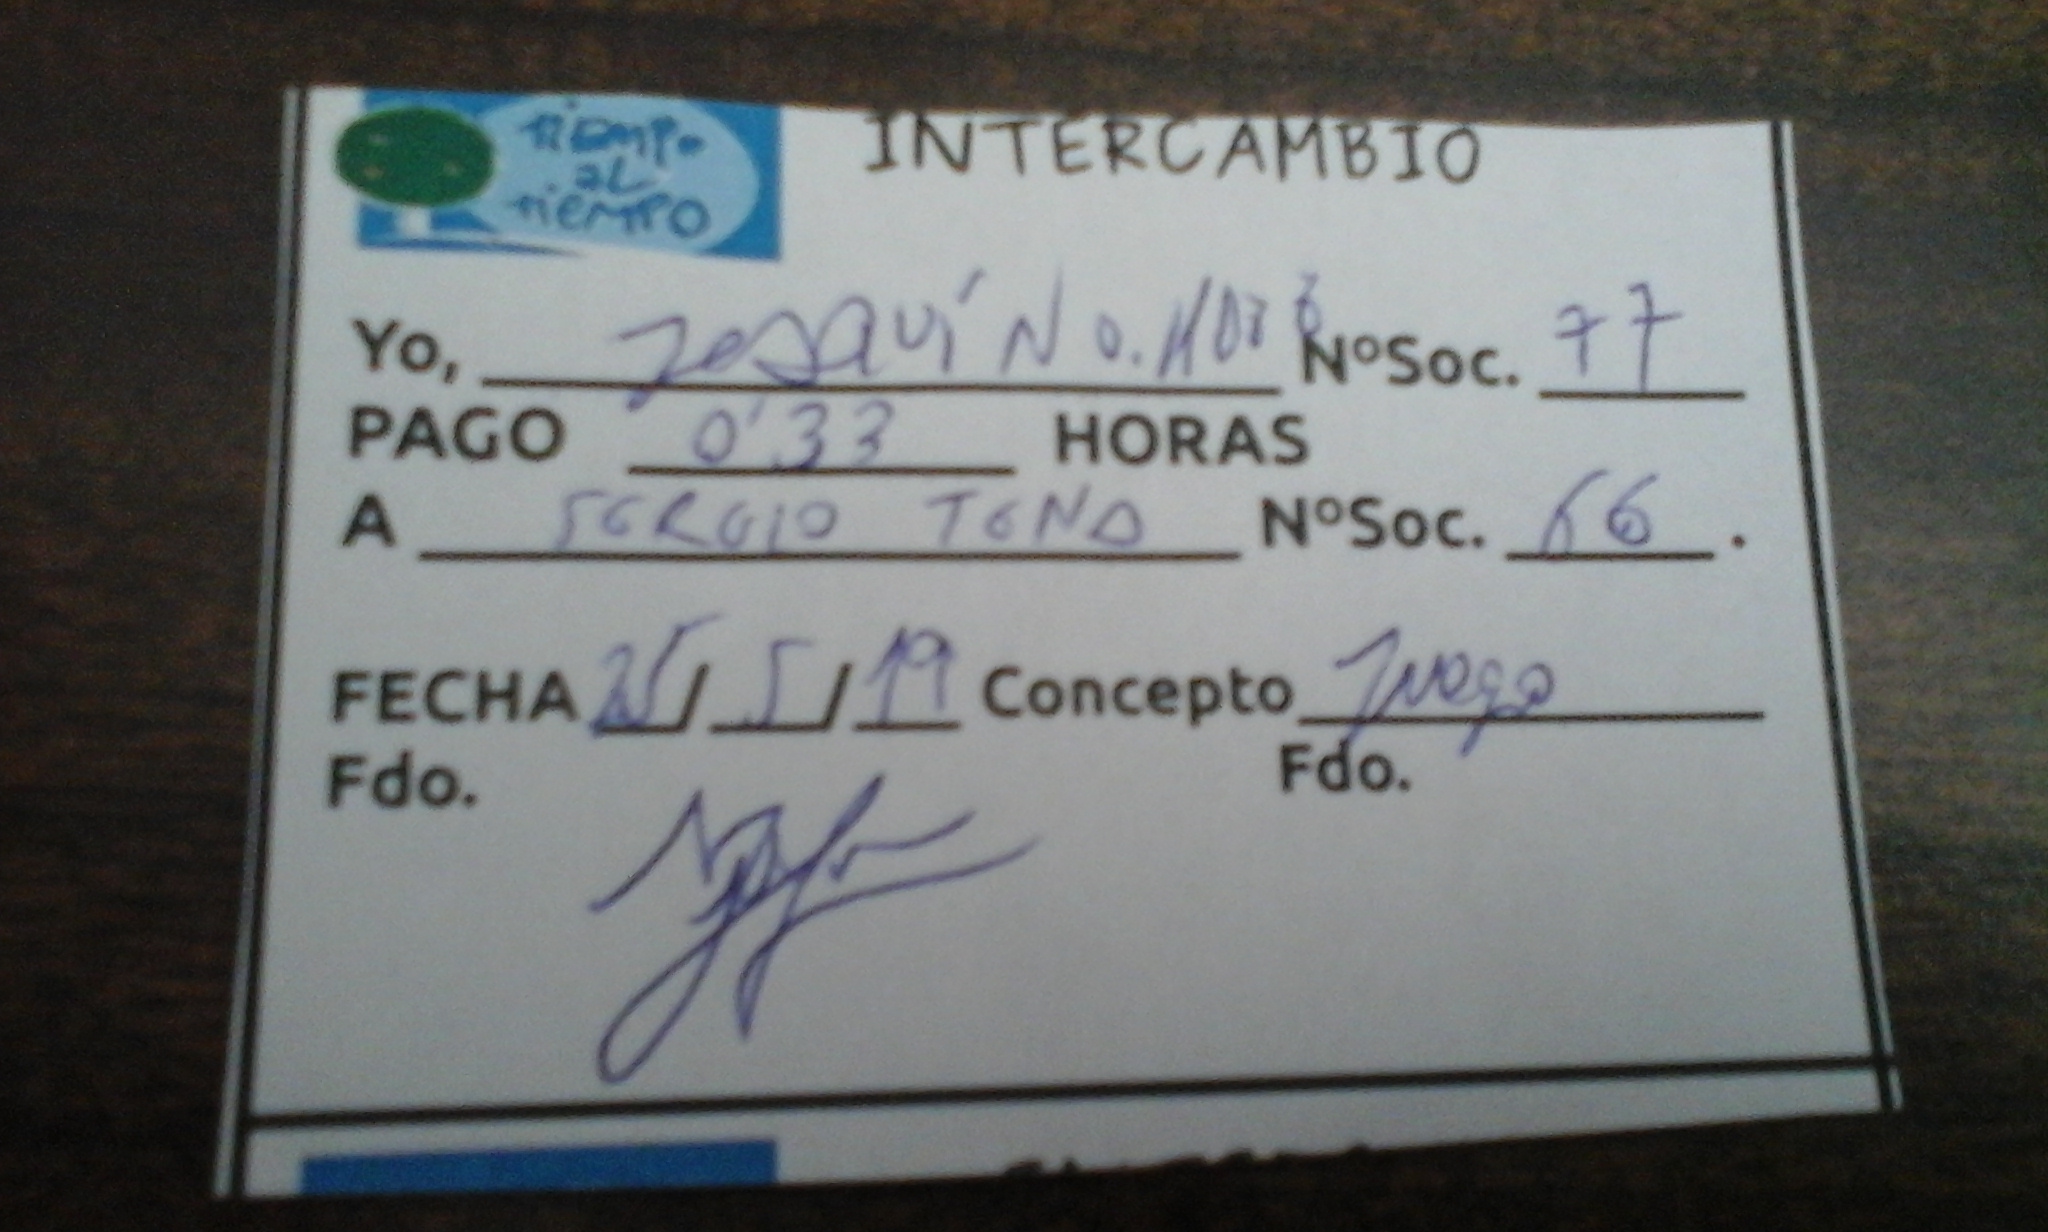 TiEMPO
AL
TiEMPO
INTERCAMBIO
Yo, JOAQUÍN NºSoc. 77
PAGO 0'33 HORAS
A SERGIO NºSoc. 66.
FECHA 25/5/19 Concepto Juego
Fdo. Fdo.